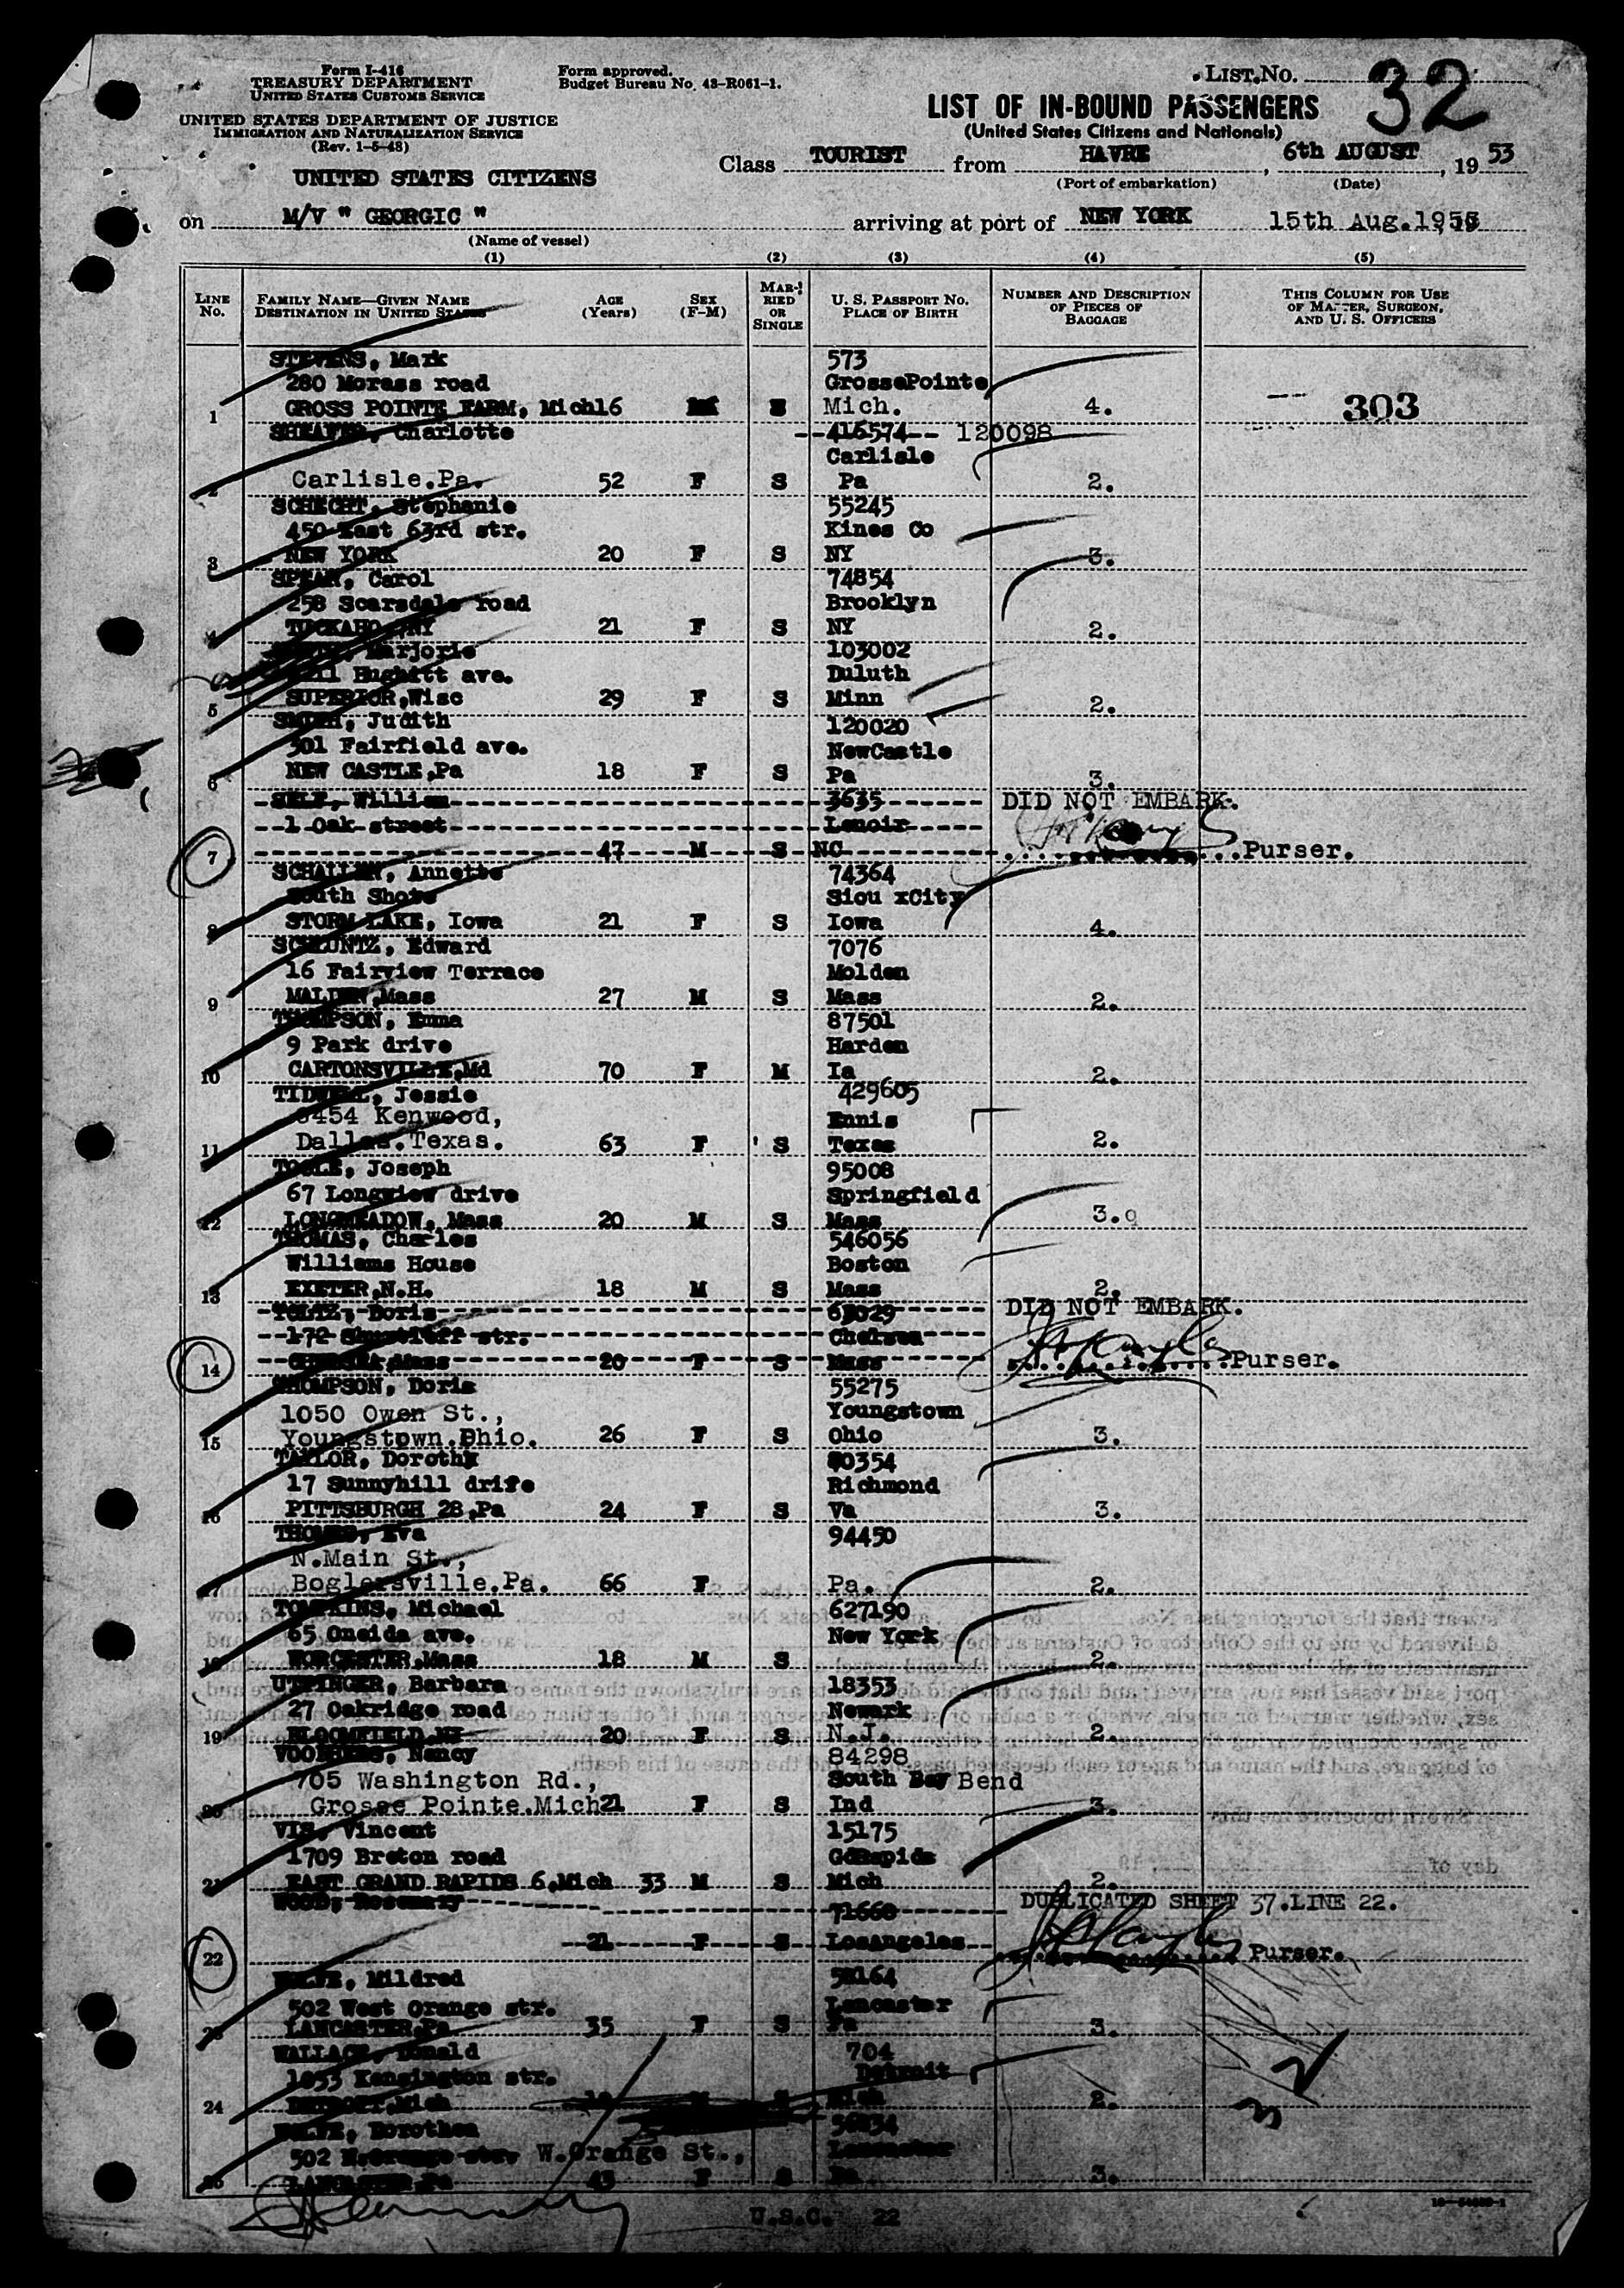 Form I-416
TREASURY DEPARTMENT
UNITED STATES CUSTOMS SERVICE
UNITED STATES DEPARTMENT OF JUSTICE
IMMIGRATION AND NATURALIZATION SERVICE
(Rev. 1-5-48)
Form approved.
Budget Bureau No. 43-R061-1.
LIST No. 32
LIST OF IN-BOUND PASSENGERS
(United States Citizens and Nationals)
Class TOURIST from HAVRE, 6th AUGUST, 19 53
(Port of embarkation) (Date)
UNITED STATES CITIZENS
on M/V " GEORGIC " arriving at port of NEW YORK 15th Aug. 1953
(Name of vessel)
(1) (2) (3) (4) (5)
LINE No.
FAMILY NAME—GIVEN NAME
DESTINATION IN UNITED STATES
AGE (Years)
SEX (F-M)
MARRIED OR SINGLE
U. S. PASSPORT No.
PLACE OF BIRTH
NUMBER AND DESCRIPTION OF PIECES OF BAGGAGE
THIS COLUMN FOR USE OF MASTER, SURGEON, AND U. S. OFFICERS
STEVENS, Mark 573
280 Morass road GrossePointe
1 GROSS POINTE FARM, Mich 16 Mich. 4. 303
Charlotte 416574 120098
Carlisle
2 Carlisle.Pa. 52 F S Pa 2.
SCHECHT, Stephanie 55245
450 East 63rd str. Kines Co
3 NEW YORK 20 F S NY 3.
SPEAR, Carol 74854
258 Scarsdale road Brooklyn
4 TUCKAHO NY 21 F S NY 2.
Marjorie 103002
Hughitt ave. Duluth
5 SUPERIOR,Wisc 29 F S Minn 2.
SMITH, Judith 120020
301 Fairfield ave. NewCastle
6 NEW CASTLE,Pa 18 F S Pa 3.
SELF, William 3635 DID NOT EMBARK.
1 Oak street Lenoir
7 47 M S NC Purser.
SCHALLER, Annette 74364
South Shore Siou xCity
8 STORM LAKE, Iowa 21 F S Iowa 4.
SCHLUNTZ, Edward 7076
16 Fairview Terrace Molden
9 MALDEN,Mass 27 M S Mass 2.
THOMPSON, Emma 87501
9 Park drive Harden
10 CARTONSVILLE,Md 70 F M Ia 2.
TIDWELL, Jessie 429605
3454 Kenwood, Ennis
11 Dallas.Texas. 63 F S Texas 2.
TOOLE, Joseph 95008
67 Longview drive Springfield
12 LONGMEADOW, Mass 20 M S Mass 3.
THOMAS, Charles 546056
Williams House Boston
13 EXETER,N.H. 18 M S Mass 2.
TOLTZ, Doris DID NOT EMBARK.
172 Shurtleff str. Chelsea
14 CHELSEA,Mass 20 F S Mass Purser.
THOMPSON, Doris 55275
1050 Owen St., Youngstown
15 Youngstown.Ohio. 26 F S Ohio 3.
TAYLOR, Dorothy 80354
17 Sunnyhill drife Richmond
16 PITTSBURGH 28,Pa 24 F S Va 3.
THOMAS, Eva 94450
N.Main St.,
17 Boglersville.Pa. 66 F Pa. 2.
TOMPKINS, Michael 627190
65 Oneida ave. New York
18 WORCESTER,Mass 18 M S 2.
UTTINGER, Barbara 18353
27 Oakridge road Newark
19 BLOOMFIELD,NJ 20 F S N.J. 2.
VOORHEES, Nancy 84298
705 Washington Rd., South Bend
20 Grosse Pointe.Mich 21 F S Ind 3.
VIS, Vincent 15175
1709 Breton road GdRapids
21 EAST GRAND RAPIDS 6,Mich 33 M S Mich 2.
WOOD, Rosemary 71660 DUPLICATED SHEET 37.LINE 22.
22 21 F S LosAngeles Purser.
WOLFE, Mildred
502 West Orange str. Lancaster
23 LANCASTER,Pa 35 F S Pa 3.
WALLACE, Donald 704
1053 Kensington str. Detroit
24 DETROIT,Mich Mich 2.
WOLFE, Dorothea
502 W.Orange St., Lancaster
25 LANCASTER,Pa 43 F S Pa 3.
U.S.C. 22